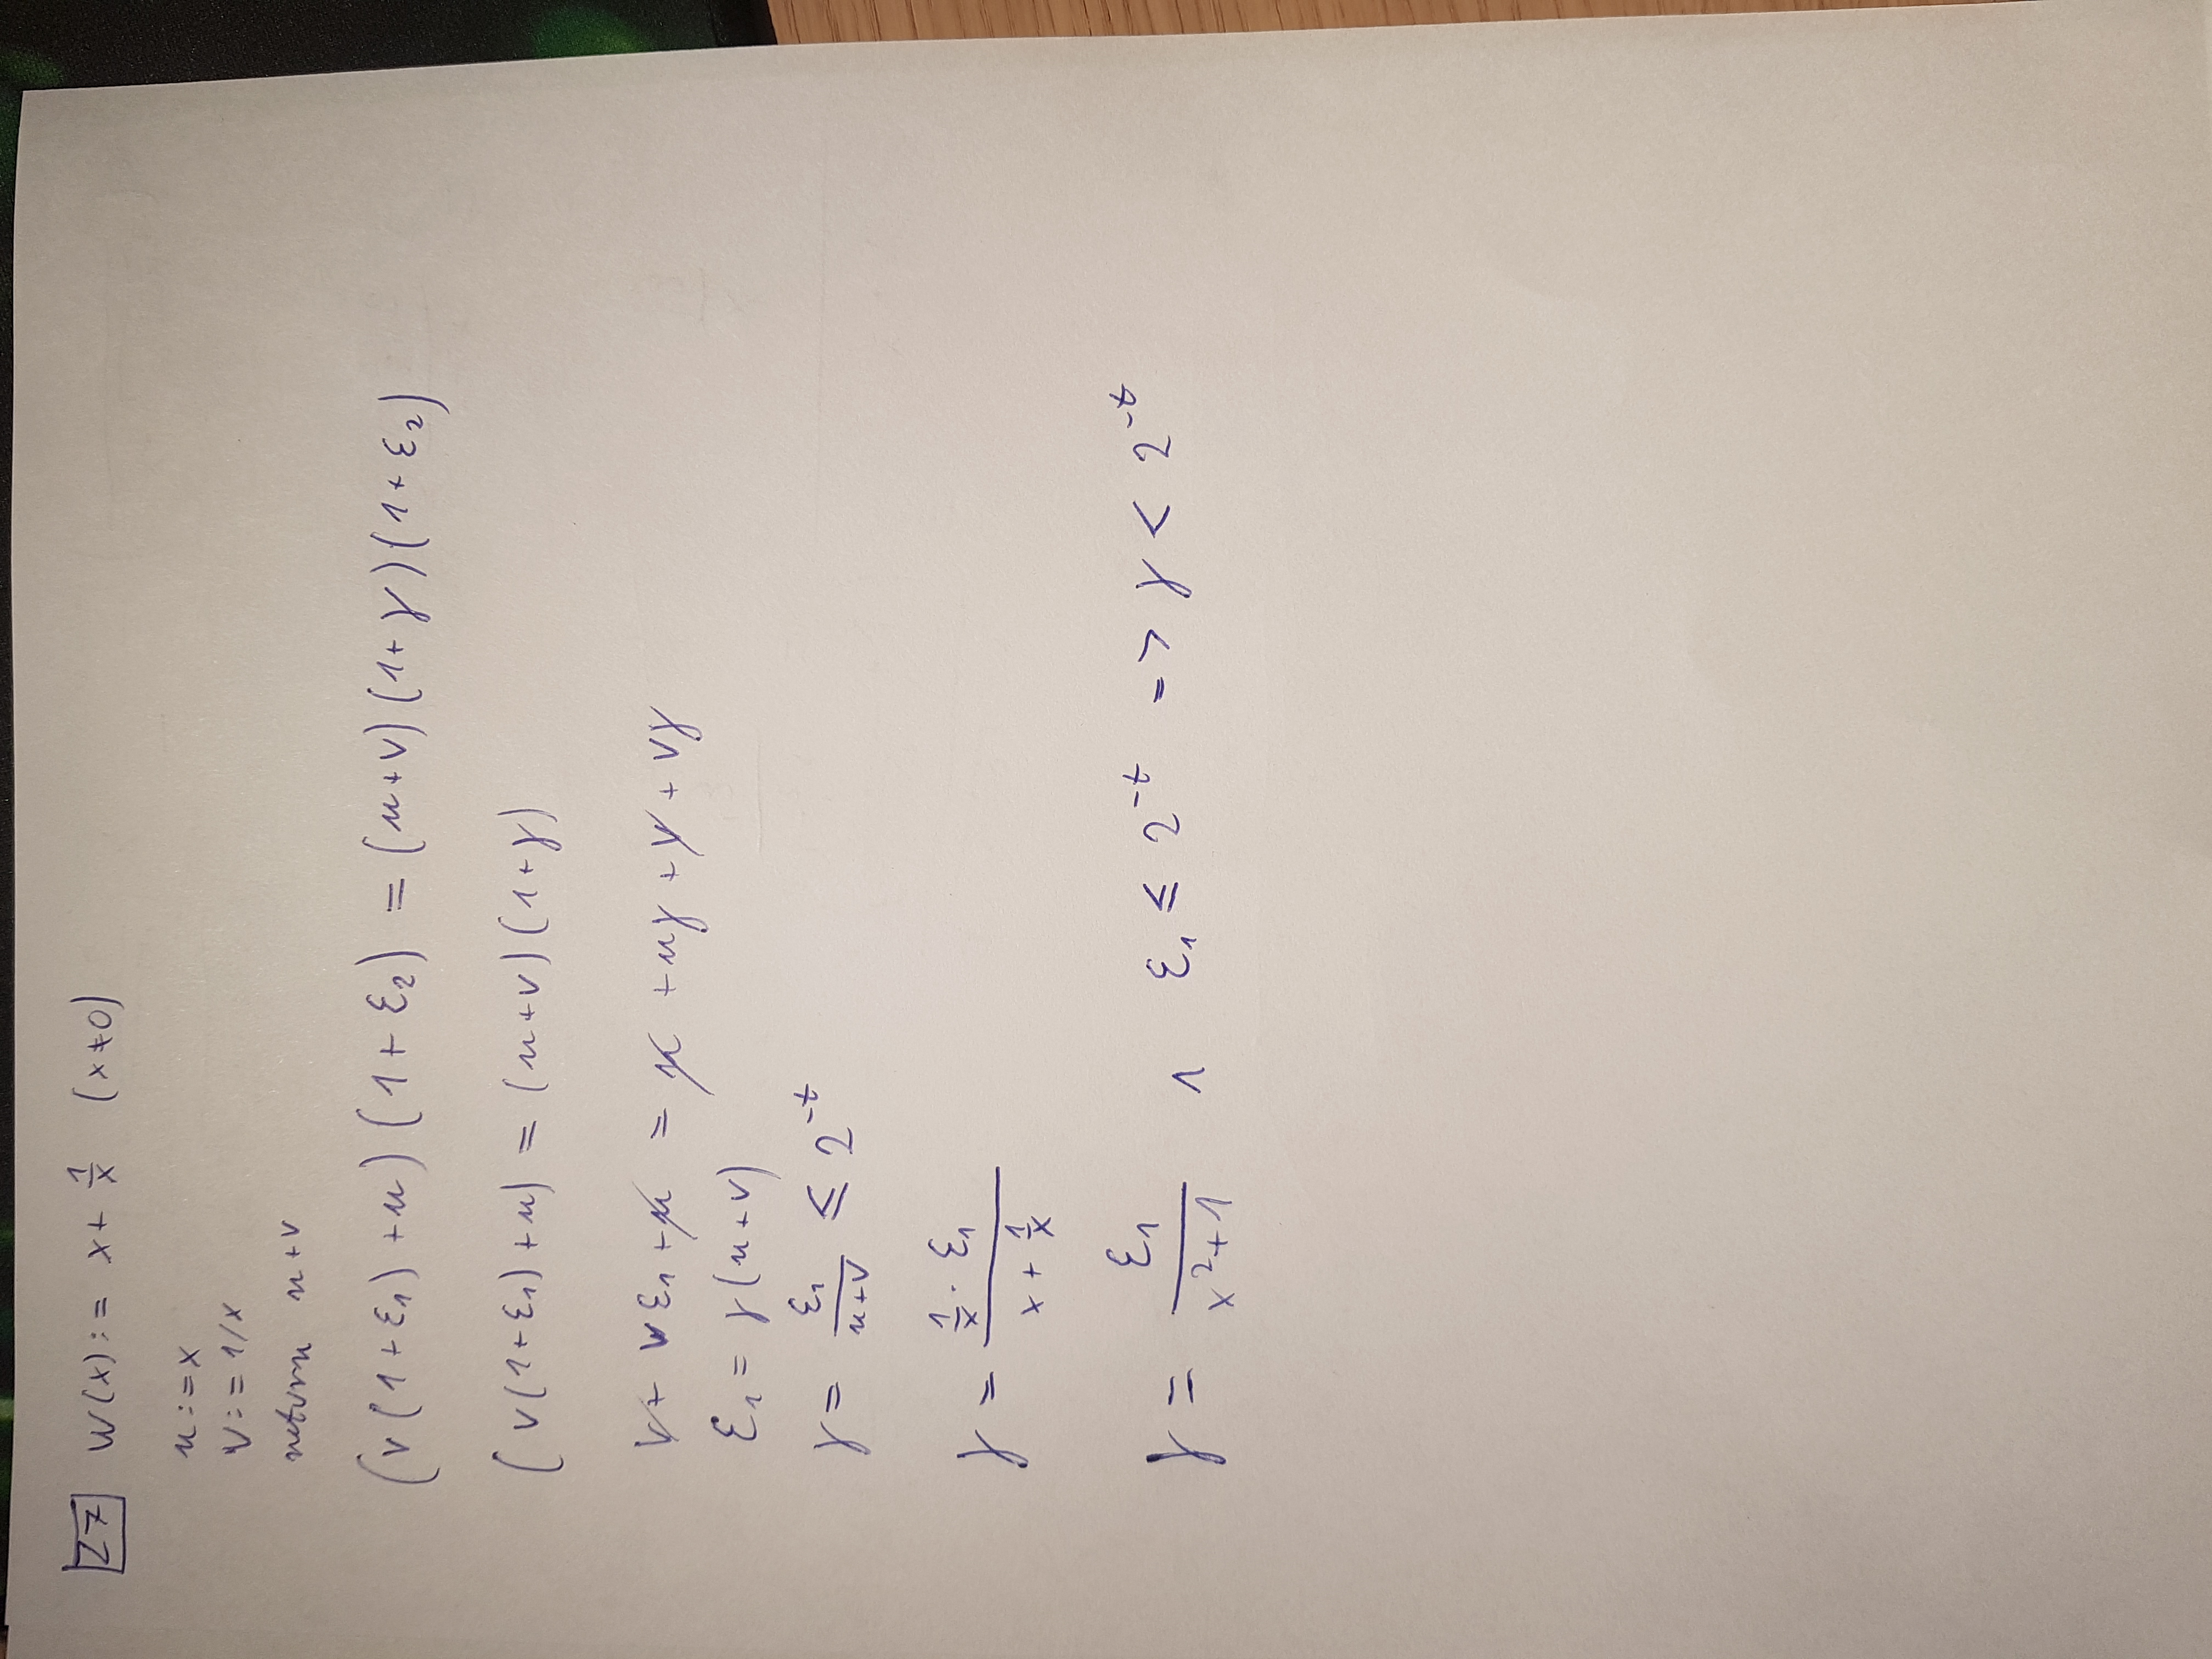 Z7 W(x):= x+ 1/x (x≠0)
u:=x
v:=1/x
return u+v
(v(1+ε₁)+u)(1+ε₂) = (u+v)(1+γ)(1+ε₂)
(v(1+ε₁)+u) = (u+v)(1+γ)
v+ vε₁+u = u +uγ+v+vγ
ε₁= γ(u+v)
γ= ε₁/(u+v) ≤ 2^-t
γ = (1/x · ε₁)/(x + 1/x)
γ = ε₁/(x²+1) ∧ ε₁ ≤ 2^-t => γ < 2^-t